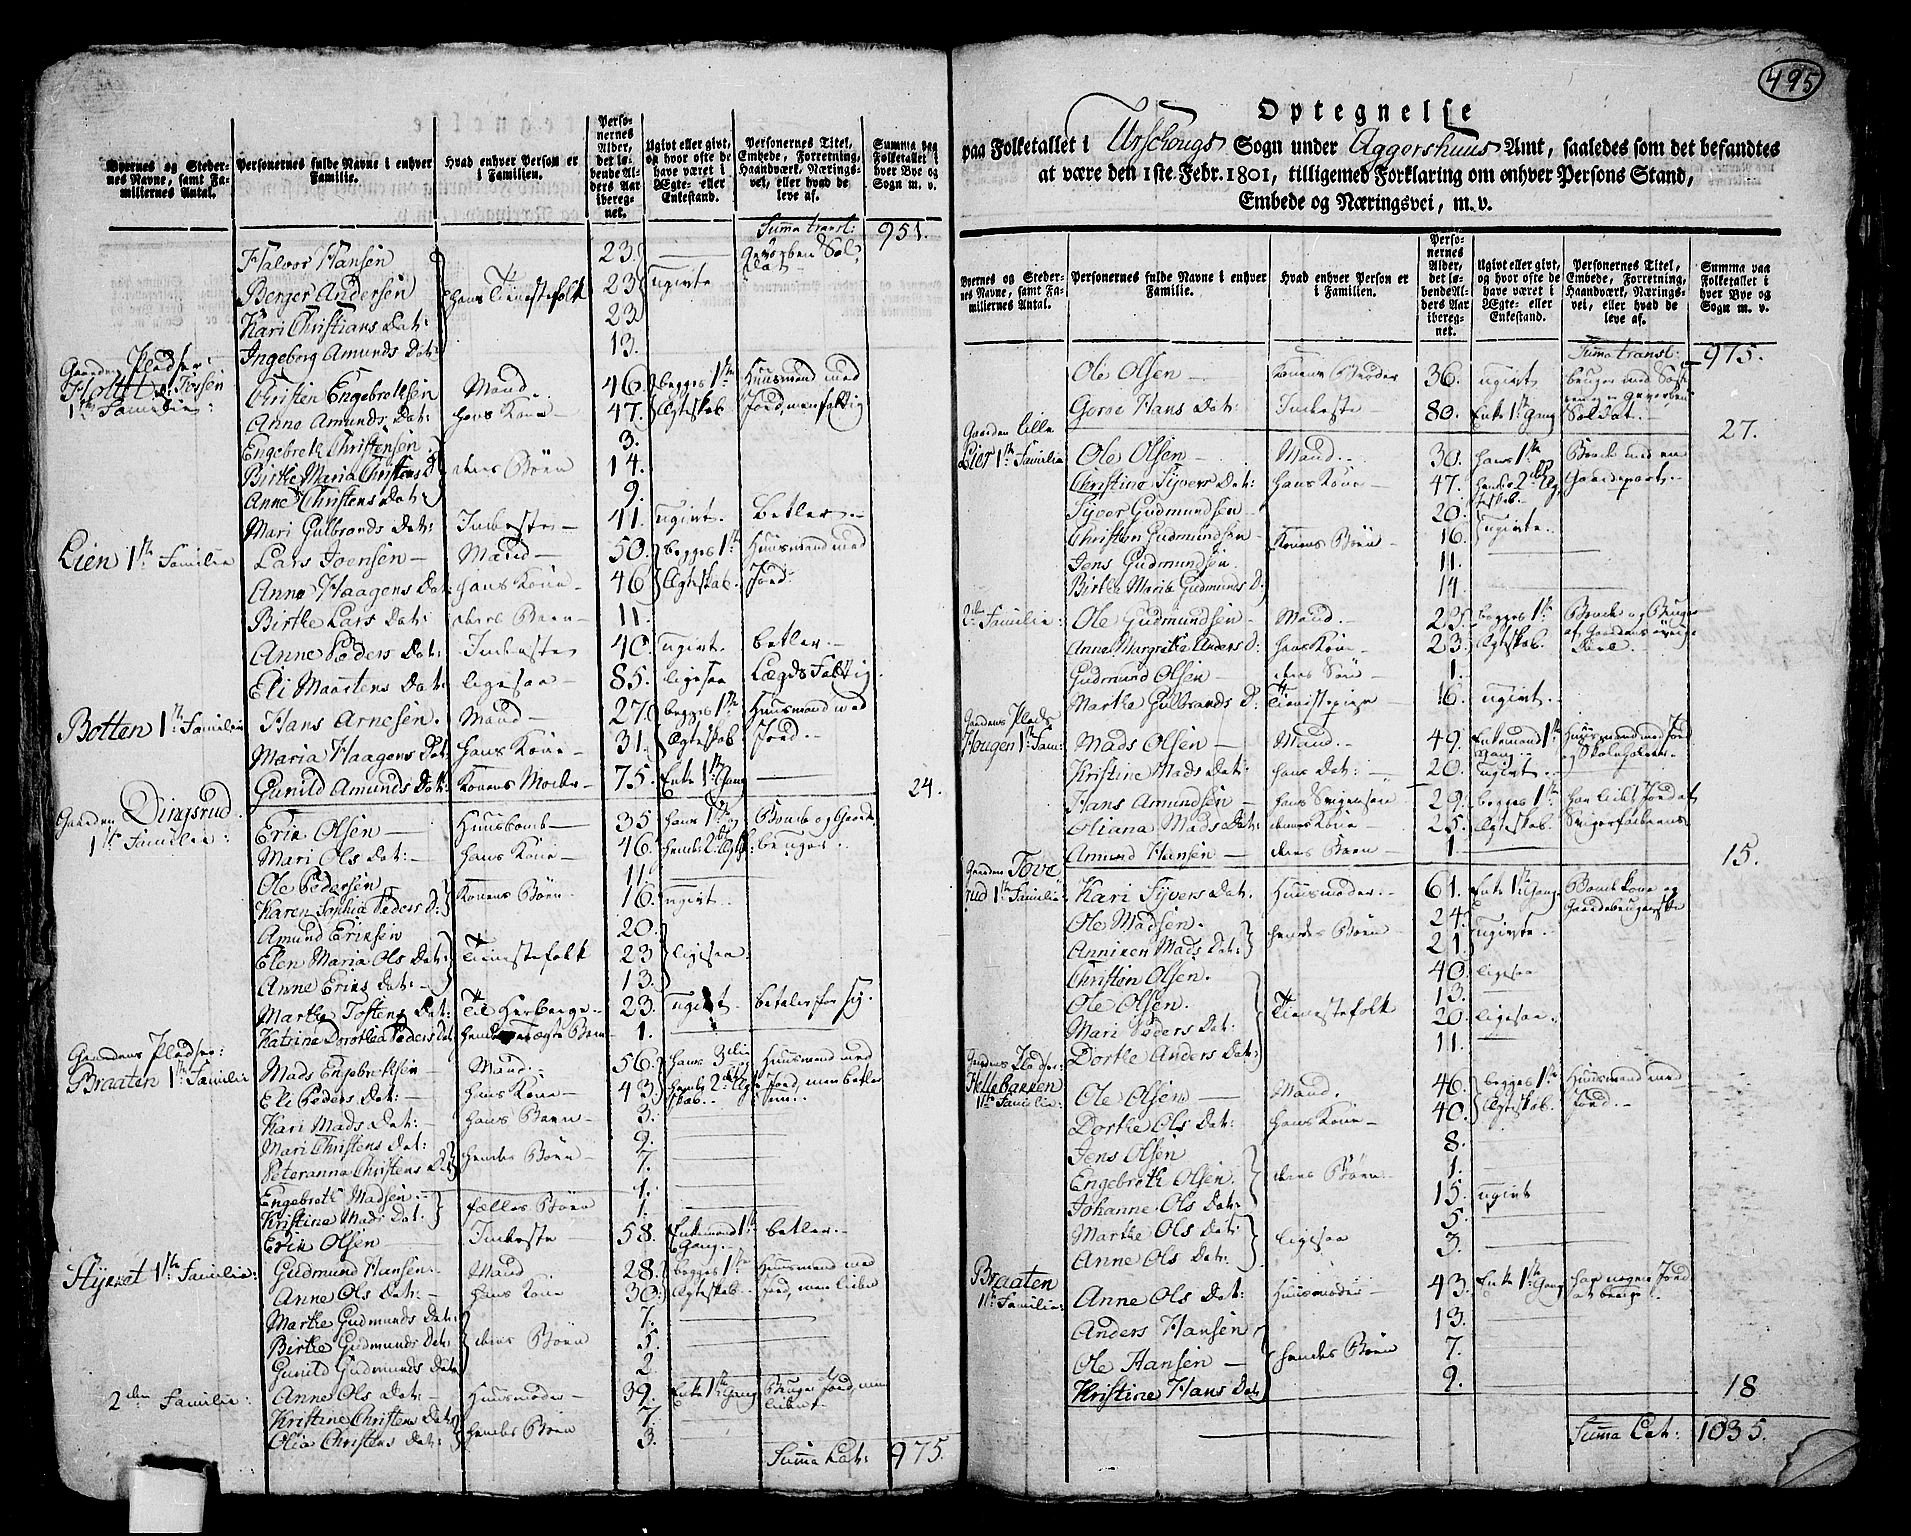 Byernes og Steder-
nes Navne, samt Fa-
milliernes Antal.
Personernes fulde Navne i enhver
Familie.
Hvad enhver Person er
i Familien.
Perso-
nernes
Alder,
det lø-
bende Al-
ders Aar
ibereg-
net.
Ugivt eller givt,
og hvor ofte de
have været i
Ægte- eller
Enkestand.
Personernes Titel,
Embede, Forretning,
Haandværk, Nærings-
vei, eller hvad de
leve af.
Summa paa
Folketallet i
hver Bye og
Sogn m. v.
Suma transl: 951.
Halvor Hansen 23. — Gevorben Sol-
dat —
Berger Andersen hans Tienestefolk 23 ugivte
Kari Christians Dat: 23
Ingeborg Amunds Dat: 13.
Gaardens Pladser:
1ste Familie: Christen Engebrethsen Mand 46. begges 1ste Huusmand med
Anne Amunds Dat: hans Kone — 47. Ægteskab Jord, men fattig
Engebreth Christensen 3.
Birthe Maria Christens D deres Børn 14.
Anne Christens Dat: 9.
Mari Gulbrands Dat: Inderste — 41. ugivt. betler. —
Lien 1ste Familie Lars Joensen — Mand — 50. begges 1ste Huusmand med
Anne Haagens Dat: hans Kone — 46 Ægteskab. Jord:
Birthe Lars Dat: deres Barn — 11.
Anne Peders Dat: Inderste 40. ugivt. betler. —
Eli Maartens Dat: ligesaa — 85. ligesaa Lægds Fattig
Botten 1ste Familie Hans Arnesen. Mand — 27. begges 1ste Huusmand med
Maria Haagens Dat: hans Kone — 31. Ægteskab Jord. —
Gunild Amunds Dat: Konens Moder — 75. Enke 1ste Gang — 24.
Gaarden Dingsrud
1ste Familie: Erik Olsen — Huusbond — 35 hans 1ste og Bonde og Gaard-
Mari Ols Dat: — hans Kone — 46. hendes 2det Ægtesk: bruger.
Ole Pedersen 11.
Karen Sophia Peders D: Konens Børn 16. ugivt.
Amund Eriksen 20.
Elen Maria Ols Dat: Tienestefolk 23 ligesaa
Anne Eriks Dat: — 13.
Marthe Tostens Dat: Til Herberge — 23. ugivt. betaler for sig.
Katrina Dorothea Peders Dat 1.
Gaardens Pladser:
Braaten 1ste Familie Mads Engebrethsen Mand. 56. Huusmand med
Eli Peders Dat: hans Kone — 43. Jord, men betler
Kari Mads Dat: hans Barn — 3.
Mari Christens Dat: 9.
Peteranna Christens Dat hendes Børn — 7.
Engebreth Madsen — 1.
Kristine Mads Dat. fælles Børn 1.
Erik Olsen — Inderste — 58. Enkemand 1ste betler. —
Gang.
Styeret 1ste Familie: Gudmund Hansen. Mand. 28. begges 1ste Huusmand med
Anne Ols Dat: hans Kone 30. Ægteskab. Jord, men lidet
Marthe Gudmunds Dat: 7.
Birthe Gudmunds Dat: deres Børn 5.
Gunild Gudmunds Dat 2.
2den Familie: Anne Ols Dat: — Huusmoder — 39. Enke 1ste Gang Bruger Jord, men
lidet.
Kristine Christens Dat: hendes Børn 7.
Olia Christens Dat: 3.
Summa Lat: 975.
495
Optegnelse
paa Folketallet i Urschougs Sogn under Aggershuus Amt, saaledes som det befandtes
at være den 1ste Febr. 1801, tilligemed Forklaring om enhver Persons Stand,
Embede og Næringsvei, m. v.
Byernes og Steder-
nes Navne, samt Fa-
milliernes Antal.
Personernes fulde Navne i enhver
Familie.
Hvad enhver Person er
i Familien.
Perso-
nernes
Alder,
det lø-
bende Al-
ders Aar
ibereg-
net.
Ugivt eller givt,
og hvor ofte de
have været i
Ægte- eller
Enkestand.
Personernes Titel,
Embede, Forretning,
Haandværk, Nærings-
vei, eller hvad de
leve af.
Summa paa
Folketallet i
hver Bye og
Sogn m. v.
Suma transl: 975.
Ole Olsen — Konens Broder 36. ugivt
Gorne Hans Dat: Inderste 80. Enke 1ste Gang Soldat. — 27.
Gaarden Lille
Lier 1ste Familie Ole Olsen — Mand — 30. hans 1ste Bonde med en
Christine Syvers Dat: hans Kone — 47. hendes 2det Æg- Gaardepart. —
teskab.
Syver Gudmundsen — 20.
Christen Gudmundsen — Konens Børn — 16. ugivte. —
Jens Gudmundsen 11.
Birthe Maria Gudmunds D: 14
2den Familie: Ole Gudmundsen — Mand. — 25. begges 1ste Bonde og Bruger
Anne Margrethe Anders D: hans Kone. 23. Ægteskab. af Gaardens øvrige
Deel. —
Gudmund Olsen — deres Søn — 1.
Marthe Gulbrands D: Tienistepige 16. ugivt. —
Gaardens Plads
Hougen 1ste Fam: Mads Olsen — Mand. — 49. Enkemand 1ste Huusmand med Jord
Gang — og Skoleholder. —
Kristine Mads Dat: hans Dat: — 20. ugivt. —
Hans Amundsen — hans Svigersøn 29. begges 1ste har lidet Jord af
Oliana Mads Dat: dennes Kone — 25. Ægteskab. Svigerfaderens —
Amund Hansen — deres Barn — 1. 15.
Gaarden Tove-
rud 1ste Familie: Kari Syvers Dat: Huusmoder. — 61. Enke 1ste Gang Bondekone og
Gaardebrugerske
Ole Madsen. 24.
Anniken Mads Dat: hendes Børn — 21. ugivte. —
Christen Olsen. 40. ligesaa
Ole Olsen. 13. —
Mari Peders Dat: Tienestefolk 20. ligesaa. —
Dorthe Anders Dat: 11. —
Gaardens Pladser:
Hellebakken
1ste Familie: Ole Olsen — Mand. 46. begges 1ste Huusmand med
Dorthe Ols Dat: hans Kone — 40. Ægteskab. Jord. —
Jens Olsen 8.
Engebreth Olsen. deres Børn — 1.
Johanne Ols Dat: 15. ugivt
Marthe Ols Dat: ligesaa 5.
Anne Ols Dat: 3.
Braaten
1ste Familie: Anne Ols Dat: Huusmoder 43. Enke 1ste Gang har nogen Jord
at bruge.
Anders Hansen 13.
Ole Hansen — hendes Børn 7.
Kristine Hans Dat: 9. 18
Summa Lat: 1035.